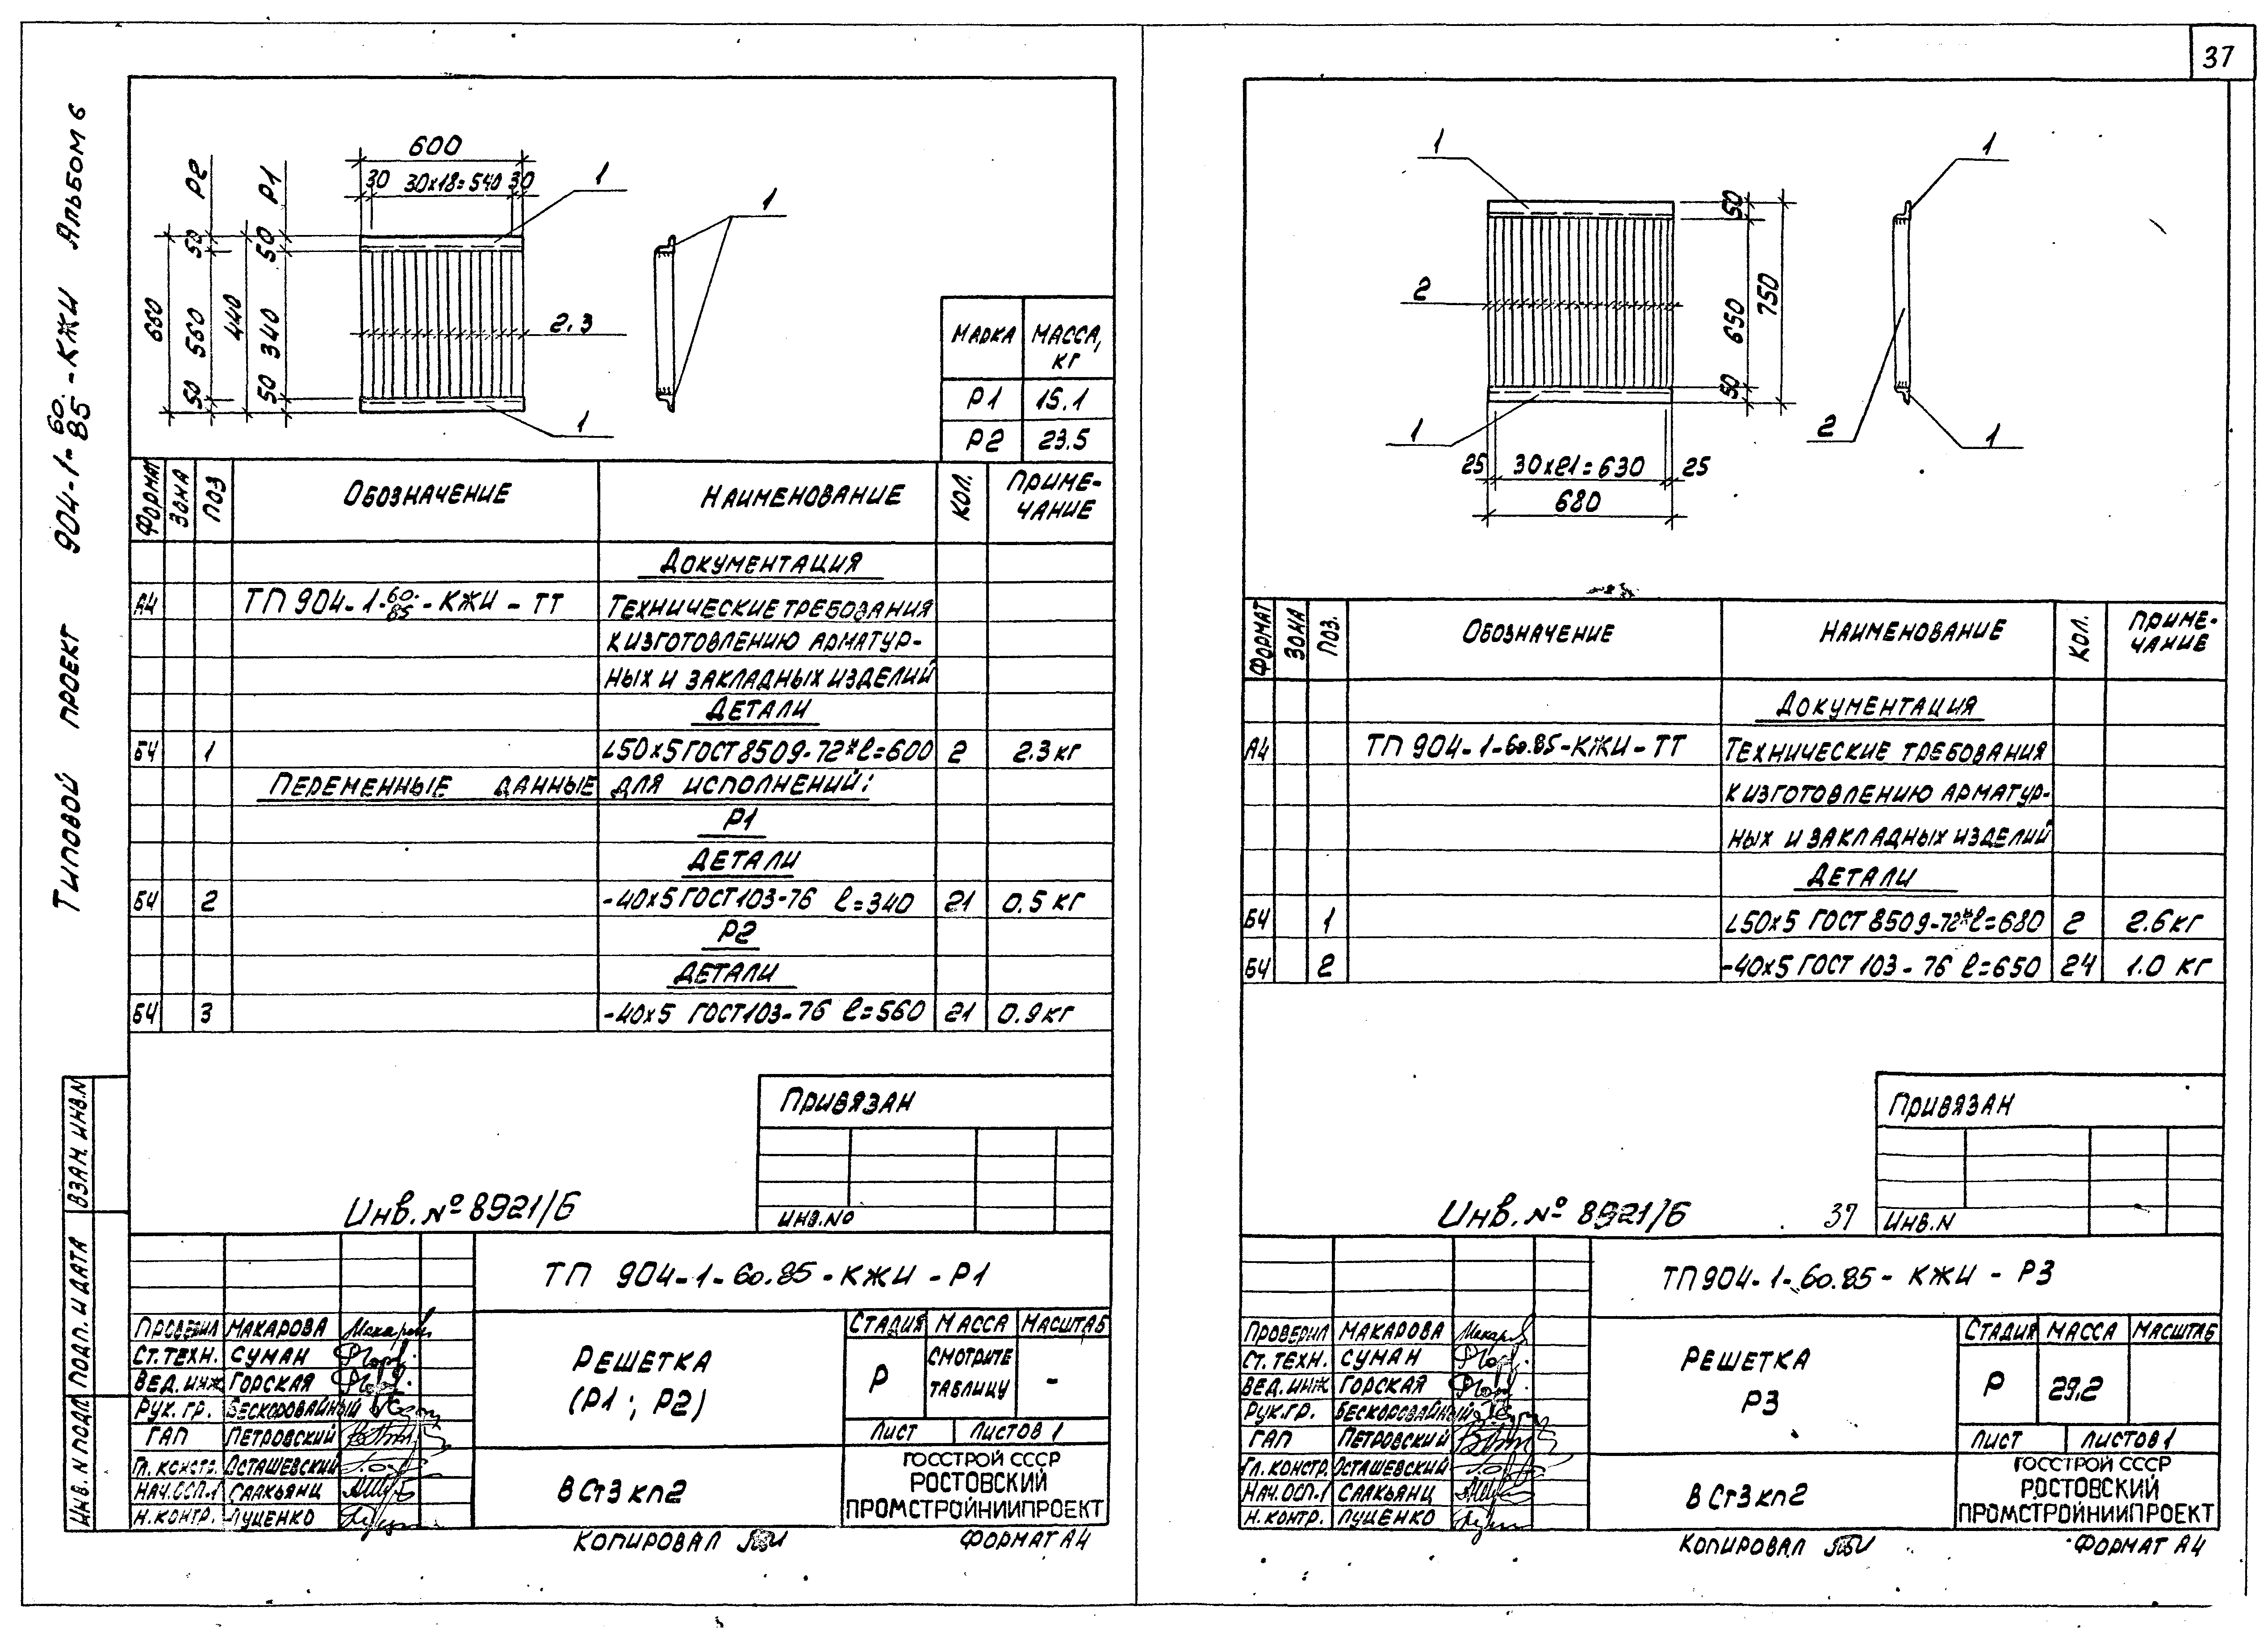 37
Типовой проект 904-1-60.85-КЖИ Альбом 6
600
30 30х18=540 30
1
1
2.3
1
Р2
Р1
660
50 560 50
440
50 340 50
Марка Масса, кг
Р1 15.1
Р2 23.5
Формат Зона Поз Обозначение Наименование Кол. Приме-
чание
Документация
А4 ТП 904-1-60.85-КЖИ-ТТ Технические требования
к изготовлению арматур-
ных и закладных изделий
Детали
Б4 1 L50х5 ГОСТ 8509-72* ℓ=600 2 2.3 кг
Переменные данные для исполнений:
Р1
Детали
Б4 2 -40х5 ГОСТ 103-76 ℓ=340 21 0.5 кг
Р2
Детали
Б4 3 -40х5 ГОСТ 103-76 ℓ=560 21 0.9 кг
Привязан
Инв.No
Инв. № 8921/6
Взам. инв.N
Подп. и дата
Инв. N подл
ТП 904-1-60.85-КЖИ-Р1
Проверил Макарова
Ст. техн. Суман
Вед. инж Горская
Рук. гр. Бескоровайный
ГАП Петровский
Гл. констр. Осташевский
Нач. ОСП-1 Саакьянц
Н. контр. Луценко
Решетка
(Р1; Р2)
Стадия Масса Масштаб
Р Смотрите
таблицу -
Лист Листов 1
В Ст3 кп2
ГОССТРОЙ СССР
РОСТОВСКИЙ
ПРОМСТРОЙНИИПРОЕКТ
Копировал
Формат А4
1
1
2
50
650
750
50
2
1
1
25 30х21=630 25
680
Формат Зона Поз. Обозначение Наименование Кол. Приме-
чание
Документация
А4 ТП 904-1-60.85-КЖИ-ТТ Технические требования
к изготовлению арматур-
ных и закладных изделий
Детали
Б4 1 L50х5 ГОСТ 8509-72* ℓ=680 2 2.6 кг
Б4 2 -40х5 ГОСТ 103-76 ℓ=650 24 1.0 кг
Привязан
Инв.N
Инв. № 8921/6 37
ТП 904-1-60.85-КЖИ-Р3
Проверил Макарова
Ст. техн. Суман
Вед. инж Горская
Рук. гр. Бескоровайный
ГАП Петровский
Гл. констр. Осташевский
Нач. ОСП-1 Саакьянц
Н. контр. Луценко
Решетка
Р3
Стадия Масса Масштаб
Р 29.2
Лист Листов 1
В Ст3 кп2
ГОССТРОЙ СССР
РОСТОВСКИЙ
ПРОМСТРОЙНИИПРОЕКТ
Копировал
Формат А4